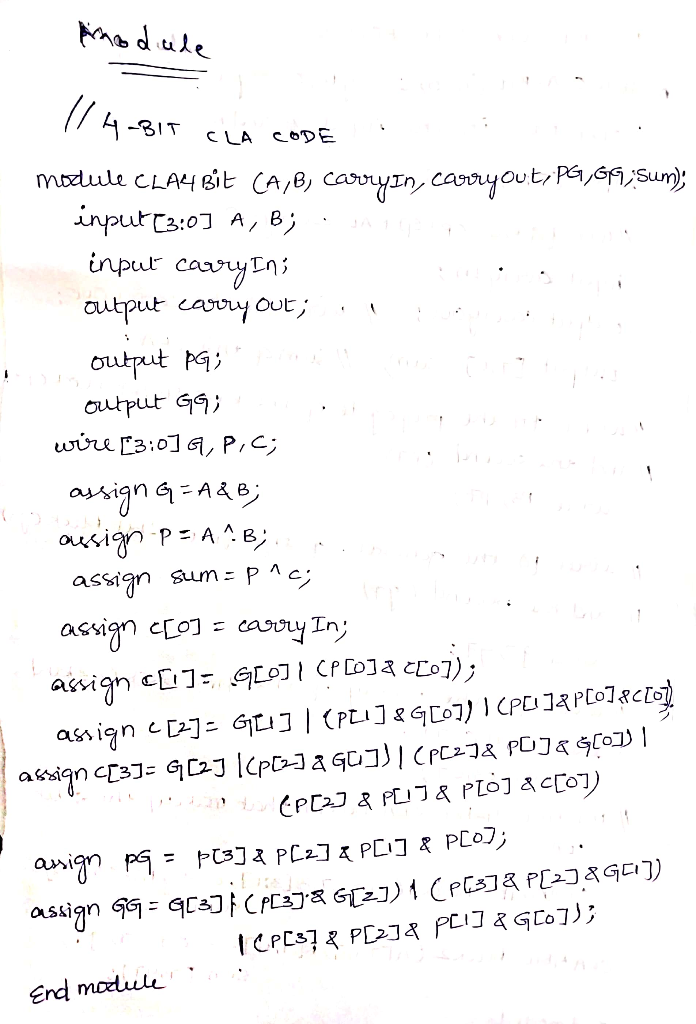 Module
// 4-BIT CLA CODE
module CLA4Bit (A,B, carryIn, carryout, PG, GG, Sum);
input [3:0] A, B;
input carryIn;
output carry out;
output PG;
output GG;
wire [3:0] G, P, C;
assign G = A & B;
assign P = A ^ B;
assign sum = P ^ C;
assign c[0] = carry In;
assign c[1] = G[0] | (P[0] & c[0]);
assign c[2] = G[1] | (P[1] & G[0]) | (P[1] & P[0] & c[0]);
assign c[3] = G[2] | (P[2] & G[1]) | (P[2] & P[1] & G[0]) |
(P[2] & P[1] & P[0] & c[0])
assign PG = P[3] & P[2] & P[1] & P[0];
assign GG = G[3] | (P[3] & G[2]) | (P[3] & P[2] & G[1])
| (P[3] & P[2] & P[1] & G[0]);
End module